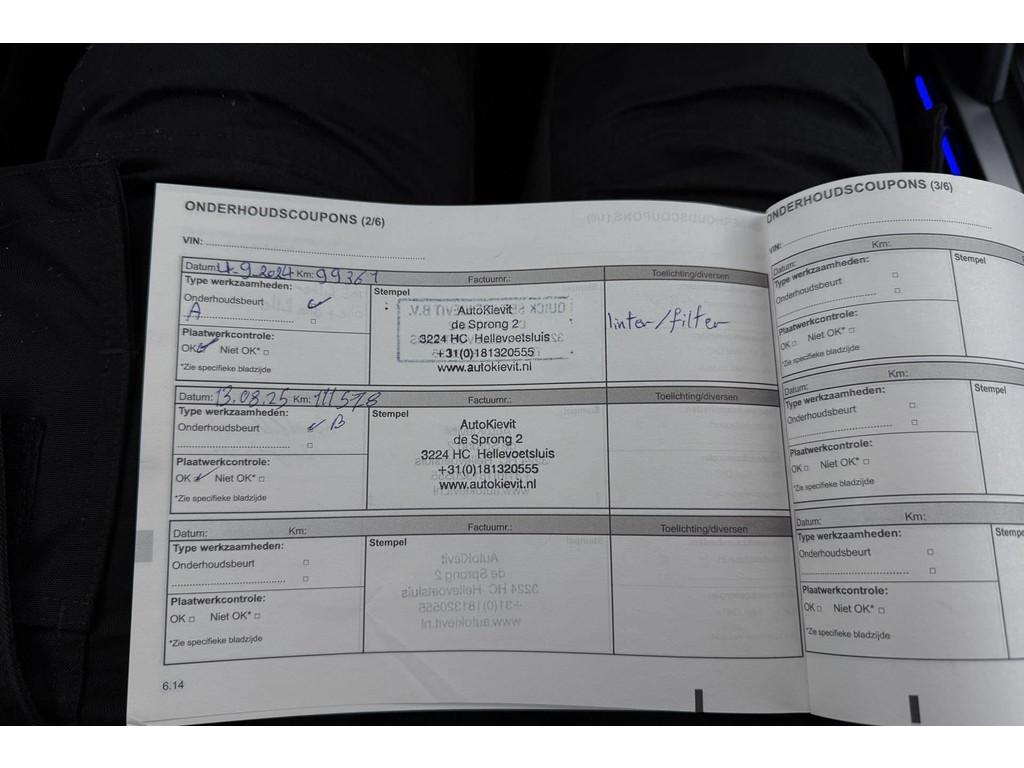 ONDERHOUDSCOUPONS (2/6)
VIN:
Datum: 4.9.2024 Km: 99361 Factuurnr.: Toelichting/diversen
Type werkzaamheden:
Onderhoudsbeurt
A
Plaatwerkcontrole:
OK Niet OK*
*Zie specifieke bladzijde
Stempel
AutoKievit
de Sprong 2
3224 HC Hellevoetsluis
+31(0)181320555
www.autokievit.nl
Datum: 13.08.25 Km: 111578 Factuurnr.: Toelichting/diversen
Type werkzaamheden:
Onderhoudsbeurt B
Plaatwerkcontrole:
OK Niet OK*
*Zie specifieke bladzijde
Stempel
AutoKievit
de Sprong 2
3224 HC Hellevoetsluis
+31(0)181320555
www.autokievit.nl
Datum: Km: Factuurnr.: Toelichting/diversen
Type werkzaamheden:
Onderhoudsbeurt
Plaatwerkcontrole:
OK Niet OK*
*Zie specifieke bladzijde
Stempel
6.14
ONDERHOUDSCOUPONS (3/6)
VIN:
Datum: Km:
Type werkzaamheden:
Onderhoudsbeurt
Plaatwerkcontrole:
OK Niet OK*
*Zie specifieke bladzijde
Stempel
Datum: Km:
Type werkzaamheden:
Onderhoudsbeurt
Plaatwerkcontrole:
OK Niet OK*
*Zie specifieke bladzijde
Stempel
Datum: Km:
Type werkzaamheden:
Onderhoudsbeurt
Plaatwerkcontrole:
OK Niet OK*
*Zie specifieke bladzijde